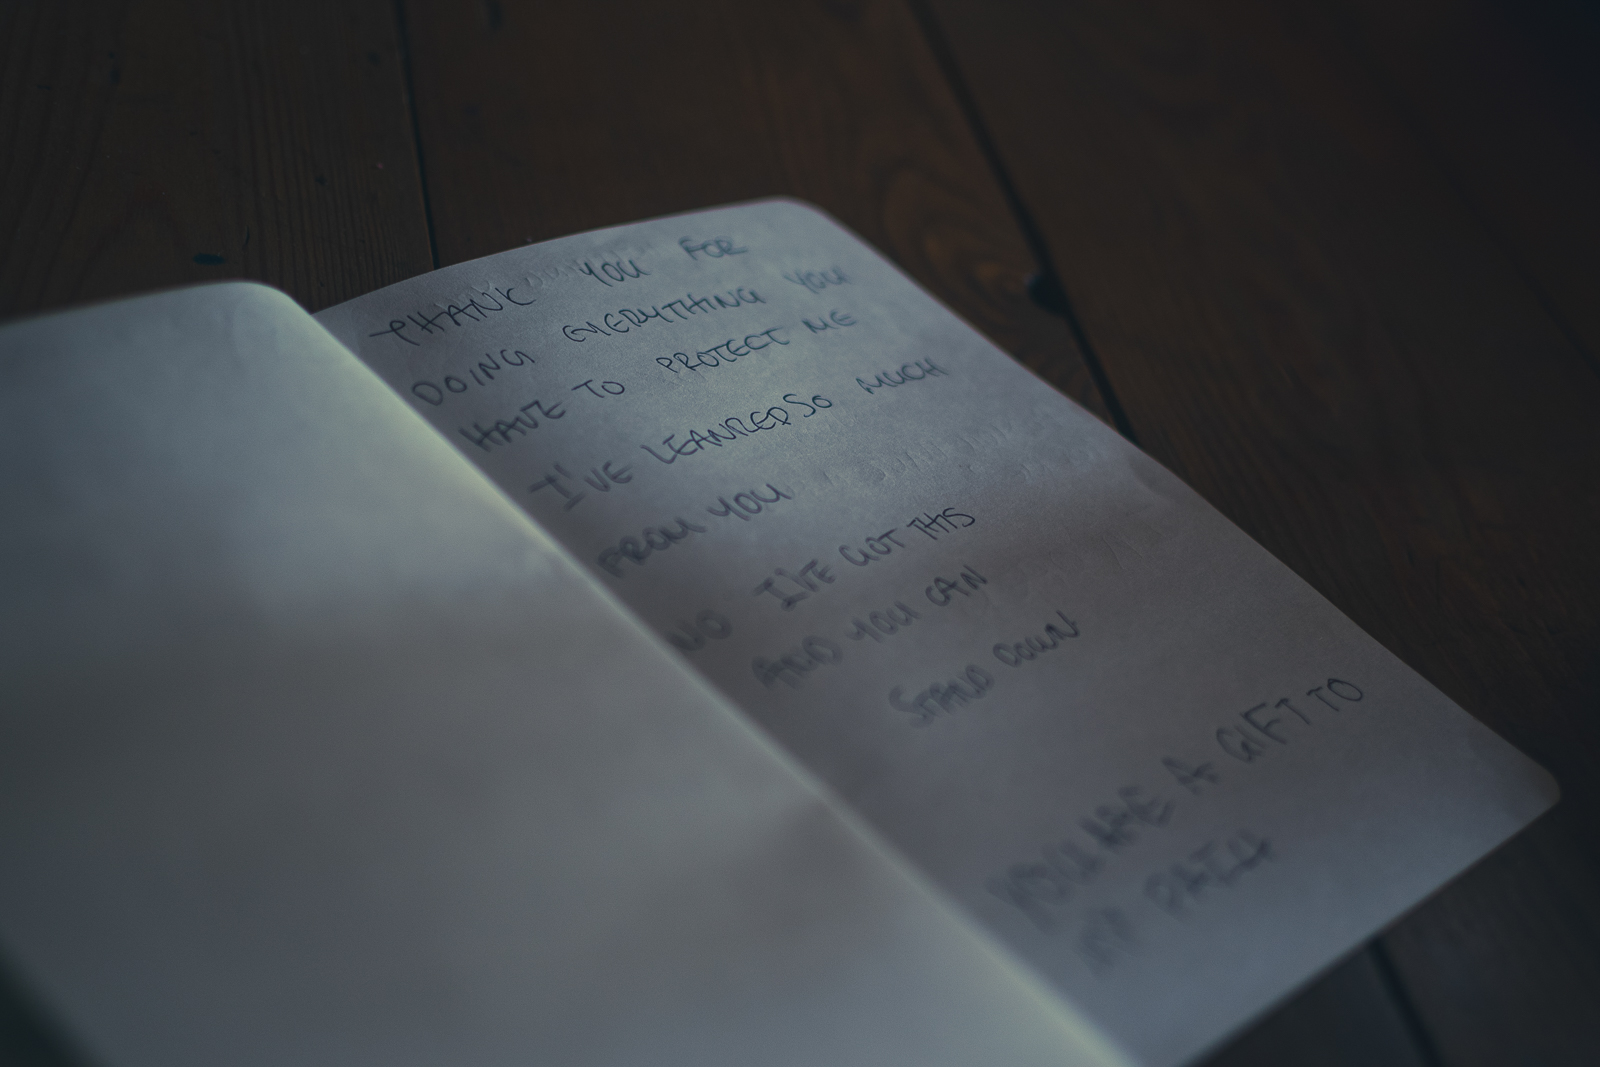 THANK YOU FOR
DOING EVERYTHING YOU
HAVE TO PROTECT ME
I'VE LEANRED SO MUCH
FROM YOU
NO I'VE GOT THIS
AND YOU CAN
STAND DOWN
YOU ARE A GIFT TO
MY PATH